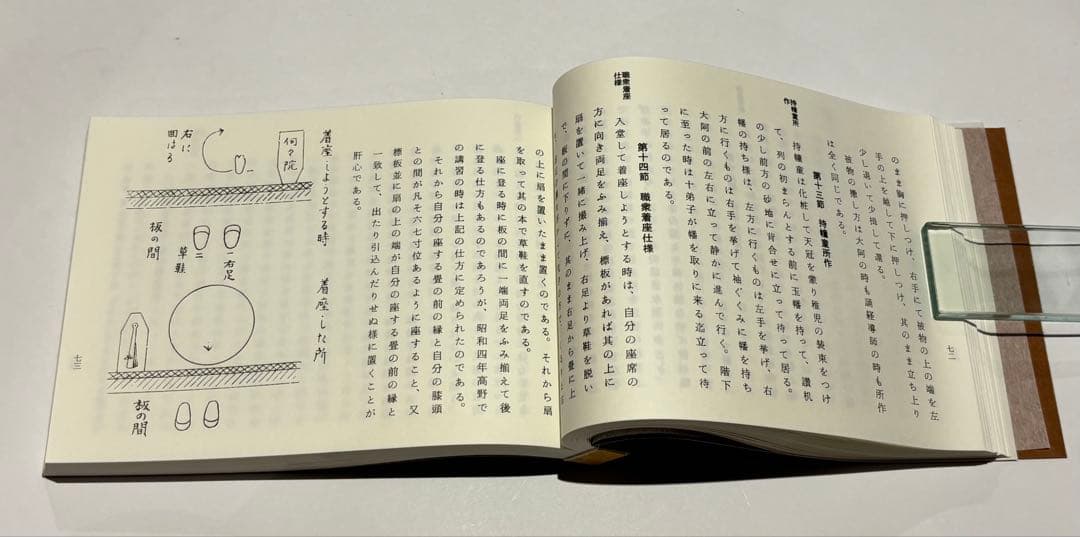 のまま胸に押しつけ、右手にて被物の上の端を左
手の上を越して下に押しつけ、其のまま立ち上り
少し退いて少揖して還る。
被物の撤し方は大阿の時も誦経導師の時も所作
は全く同じである。
持幢童所
作
第十三節 持幢童所作
持幢童は化粧して天冠を蒙り稚児の装束をつけ
て、列の初まらんとする前に玉幡を持って、讃机
の少し前方の砂地に背合せに立って待って居る。
幡の持ち様は、左方に行くものは左手を挙げ、右
方に行くものは右手を挙げて袖ぐくみに幡を持ち
大阿の前の左右に立って静かに進んで行く。階下
に至った時は十弟子が幡を取りに来る迄立って待
って居るのである。
職衆着座
仕様
第十四節 職衆着座仕様
入堂して着座しようとする時は、自分の座席の
方に向き両足をふみ揃え、標板があれば其の上に
扇を置いて一緒に撮み上げ、右足より草鞋を脱い
で、板の間に下りずに、其のまま右足から畳に上
七二
の上に扇を置いたまま置くのである。それから扇
を取って其の本で草鞋を直すのである。
座に登る時に板の間に一端両足をふみ揃えて後
に登る仕方もあるのであろうが、昭和四年高野で
の講習の時は上記の仕方に定められたのである。
それから自分の座する畳の前の縁と自分の膝頭
との間が凡そ六七寸位あるように座すること、又
標板並に扇の上の端が自分の座する畳の前の縁と
一致して、出たり引込んだりせぬ様に置くことが
肝心である。
着座しようとする時
何々院
右に
回はる
板の間
一右足
二
草鞋
着座した所
板の間
七三